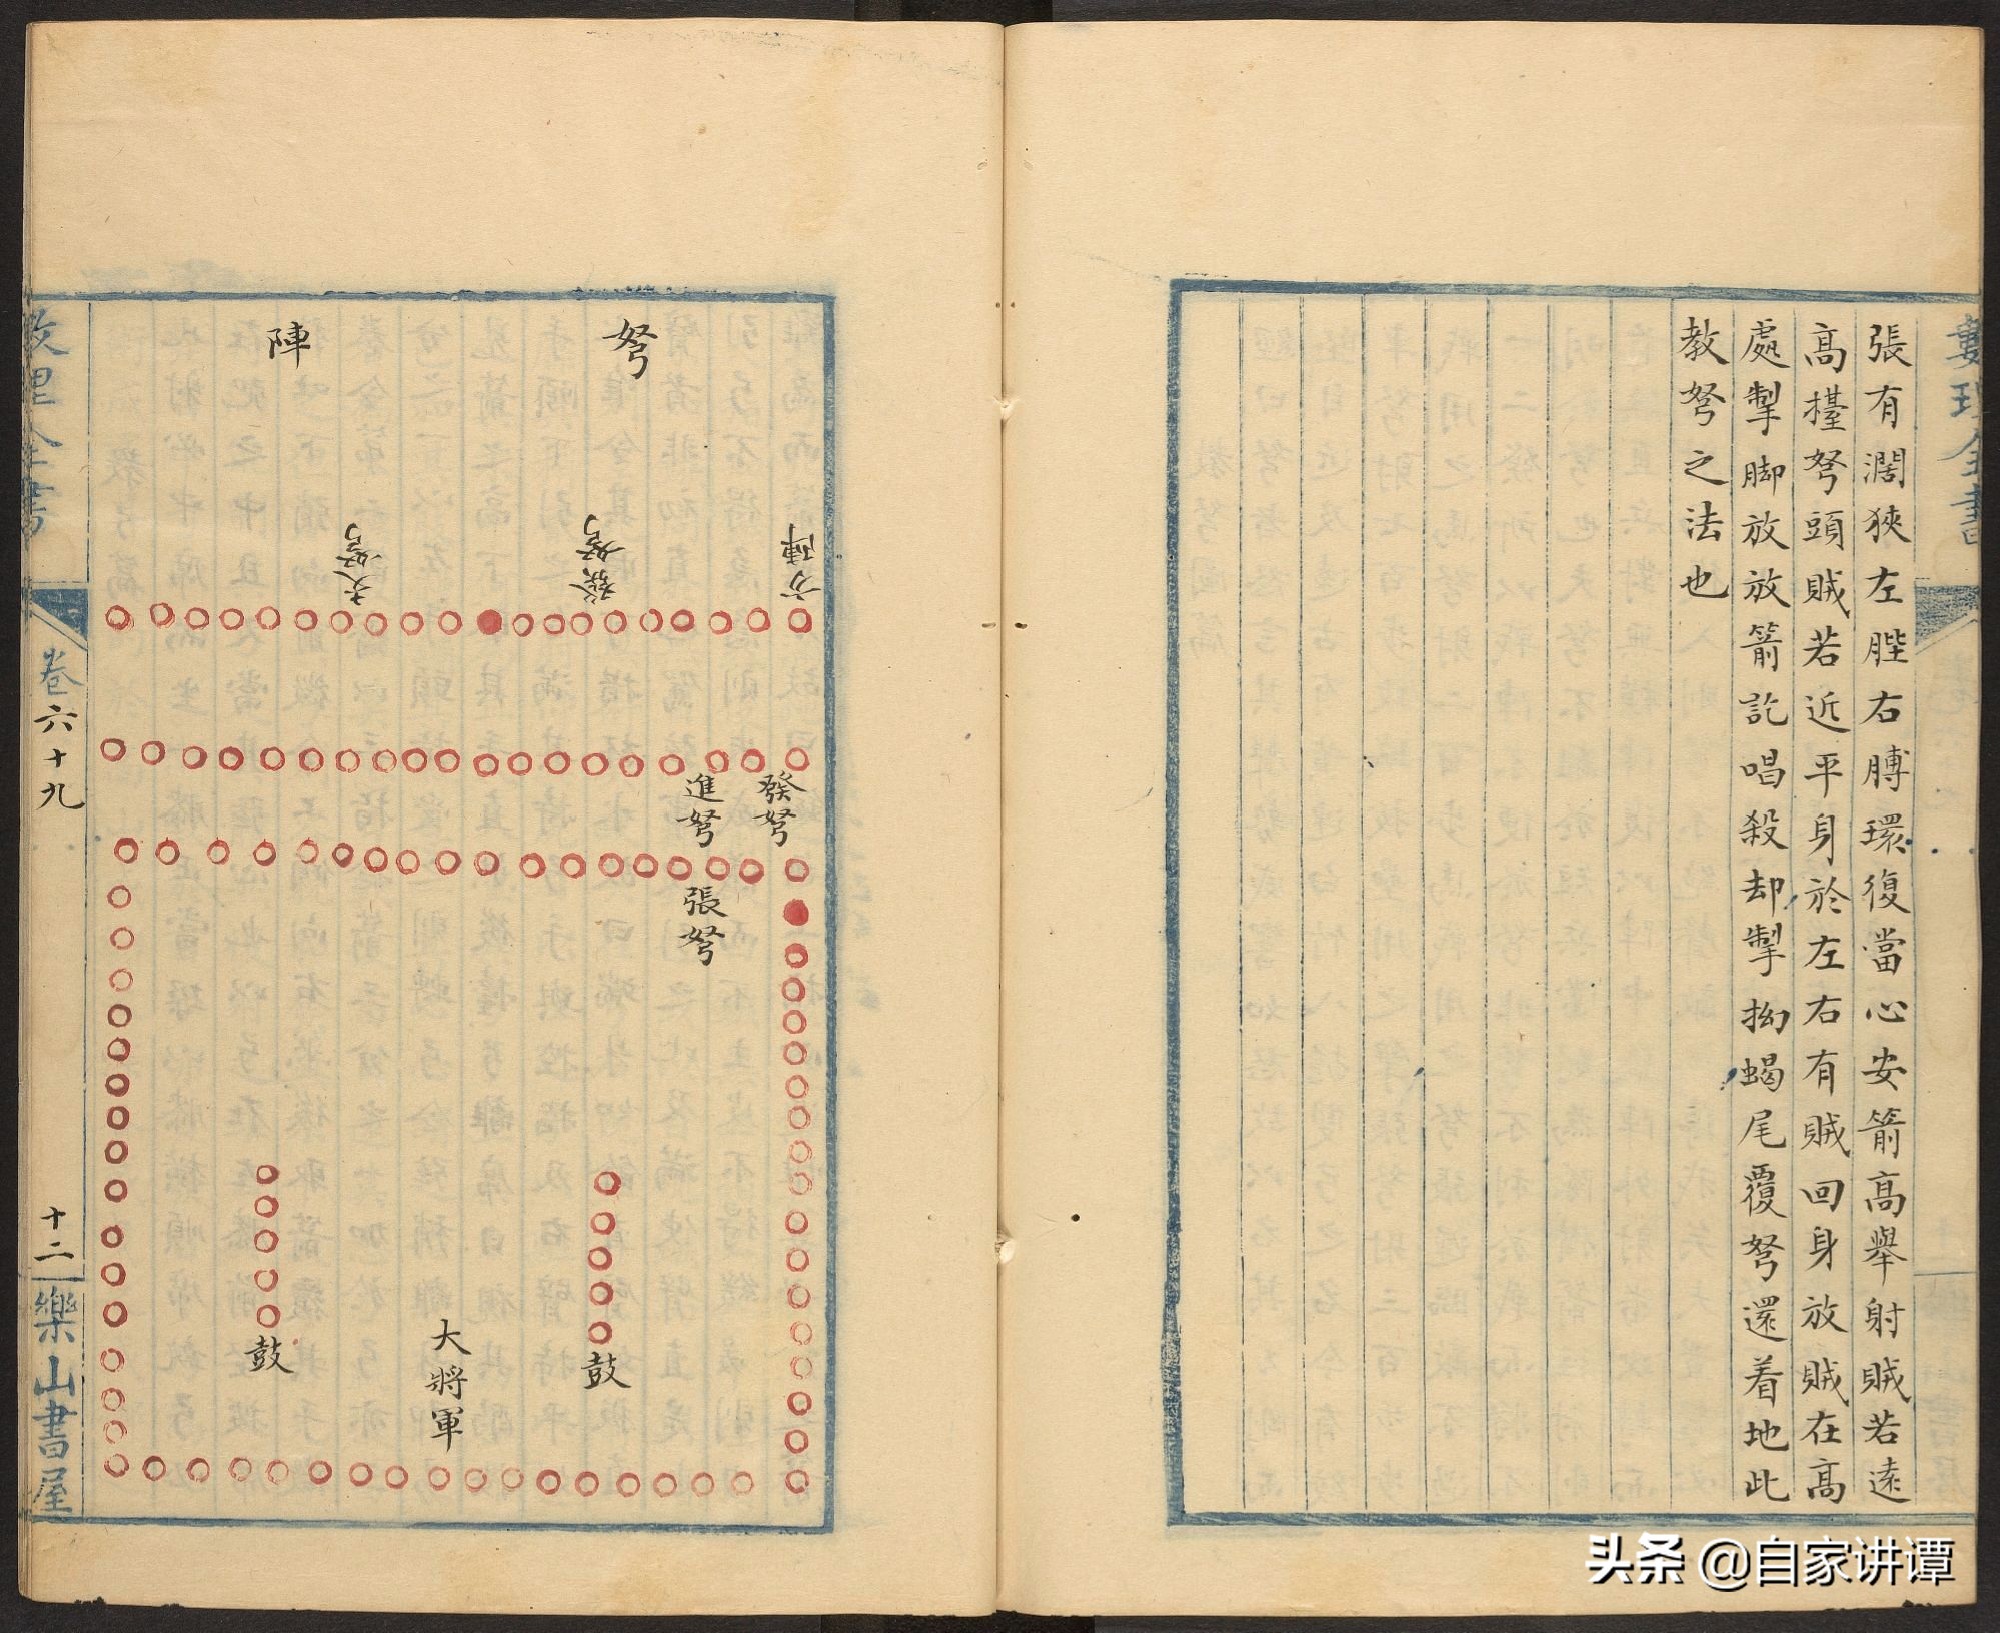 張有濶狹左脞右膊環復當心安箭高舉射賊若遠
高擡弩頭賊若近平身於左右有賊回身放賊在高
處掣脚放放箭訖唱殺却掣拗蝎尾覆弩還着地此
教弩之法也
弩
陣
方陣
發弩
弩
發弩
進弩
張弩
鼓
大將軍
鼓
數理全書
卷六十九
十二
樂山書屋
头条 @自家讲谭